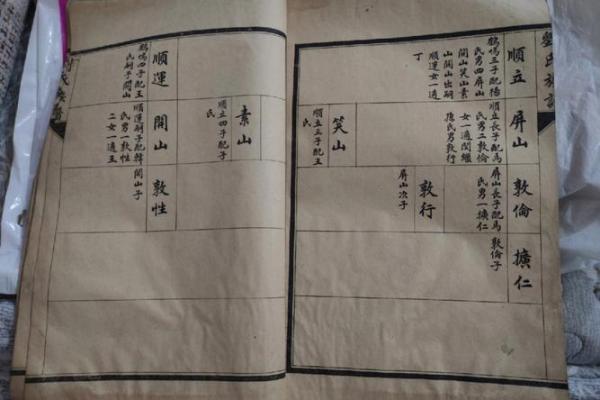 氏族譜
順立
鶴鳴三子配楊
氏男四屏山
開山笑山素
山開山出嗣
順運女一適
丁
屏山
順立長子配馬
氏男二敦倫
女一適閔繼
氏男敦行
笑山
順立三子配王
氏
敦倫
屏山長子配馬
氏男一擴仁
敦行
屏山次子
擴仁
敦倫子
順運
鶴鳴四子配王
氏嗣子開山
素山
順立四子配于
氏
開山
順運嗣子配韓
氏男一敦性
二女一適王
敦性
開山子